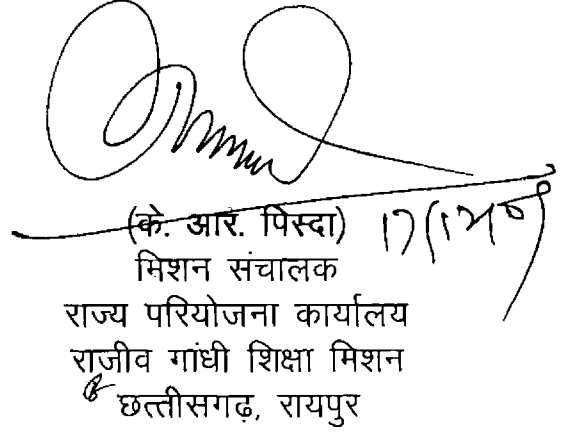 (के. आर. पिस्दा)
मिशन संचालक
राज्य परियोजना कार्यालय
राजीव गांधी शिक्षा मिशन
छत्तीसगढ़, रायपुर